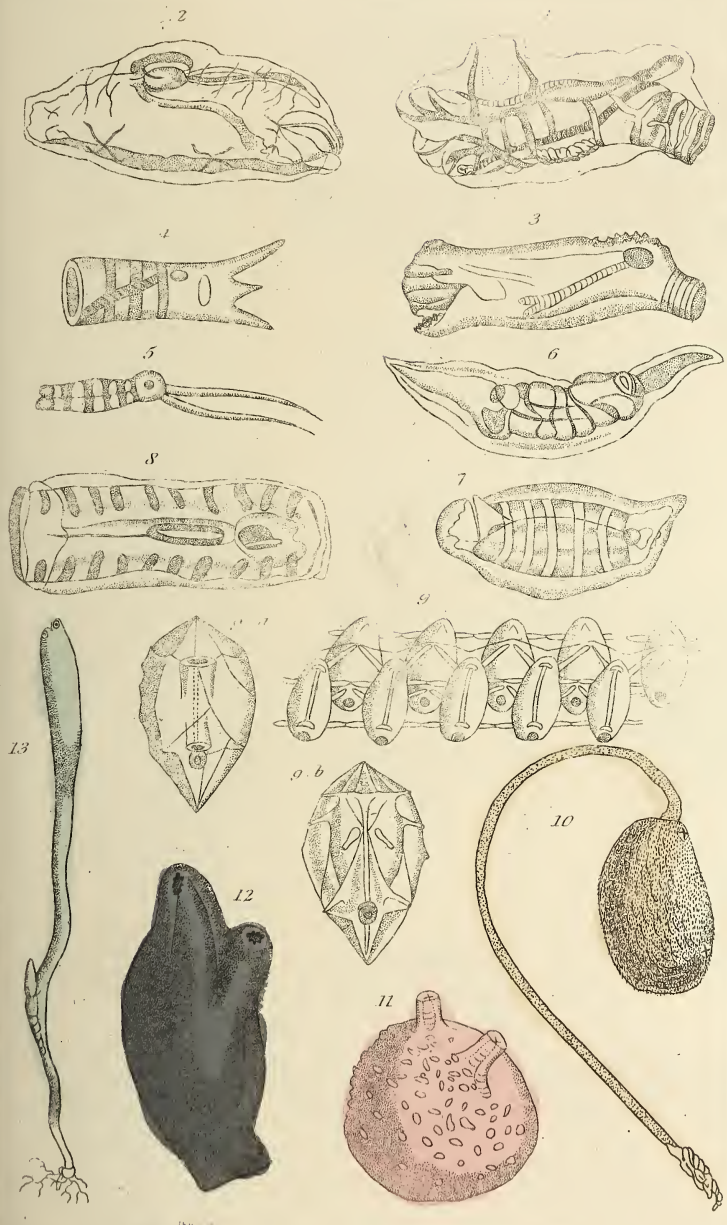 2
1
4
3
5
6
8
7
9
9. b
13
10
12
11